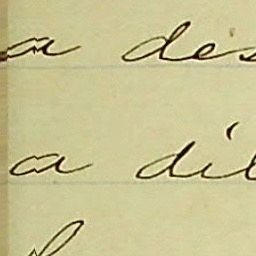 a des
a dil